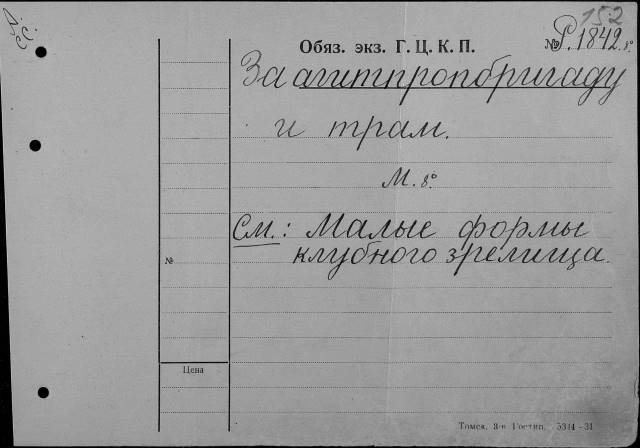 152
Обяз. экз. Г. Ц. К. П.
№ Р.1842. 8°
За агитпропбригаду
и трам.
М. 8°.
См.: Малые формы
клубного зрелища.
№
Цена
Томск, 3-я Гостип. 5344-31